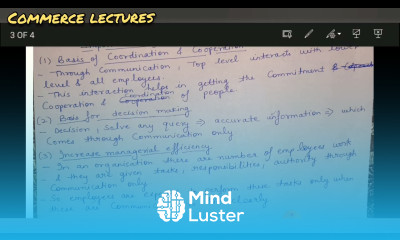 COMMERCE LECTURES
3 OF 4
(1) Basis of Coordination & Cooperation
- Through Communication, Top level interacts with lower
level & all employees.
- This interaction helps in getting the Commitment &
Cooperation & Coordination of people.
(2) Basis for decision making
- Decision, solve any query → accurate information → which
comes through Communication only
(3) Increase managerial efficiency.
- In an organisation there are number of employees work
& they are given tasks, responsibilities, authority through
Communication only.
- So employees are perform their tasks only when
these are clearly
Mind
Luster